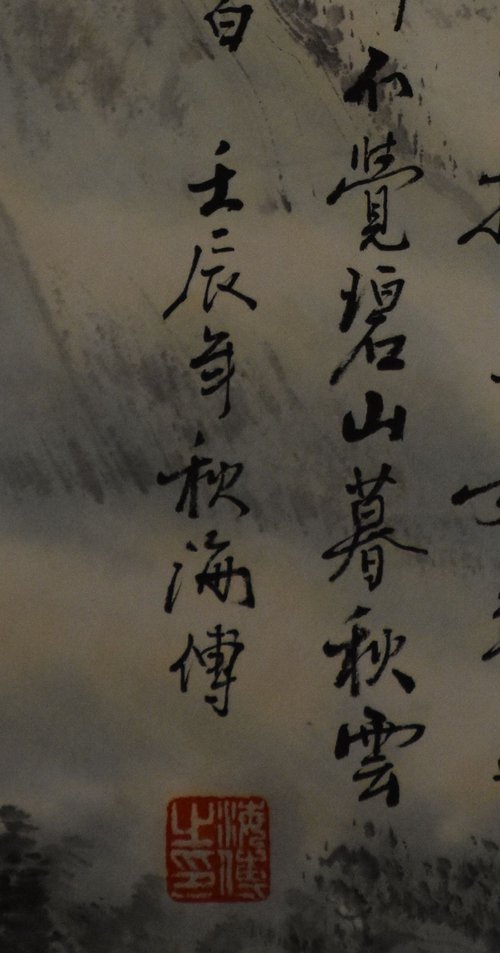 不覺碧山暮秋雲
白 壬辰年秋海傳
海傳之印